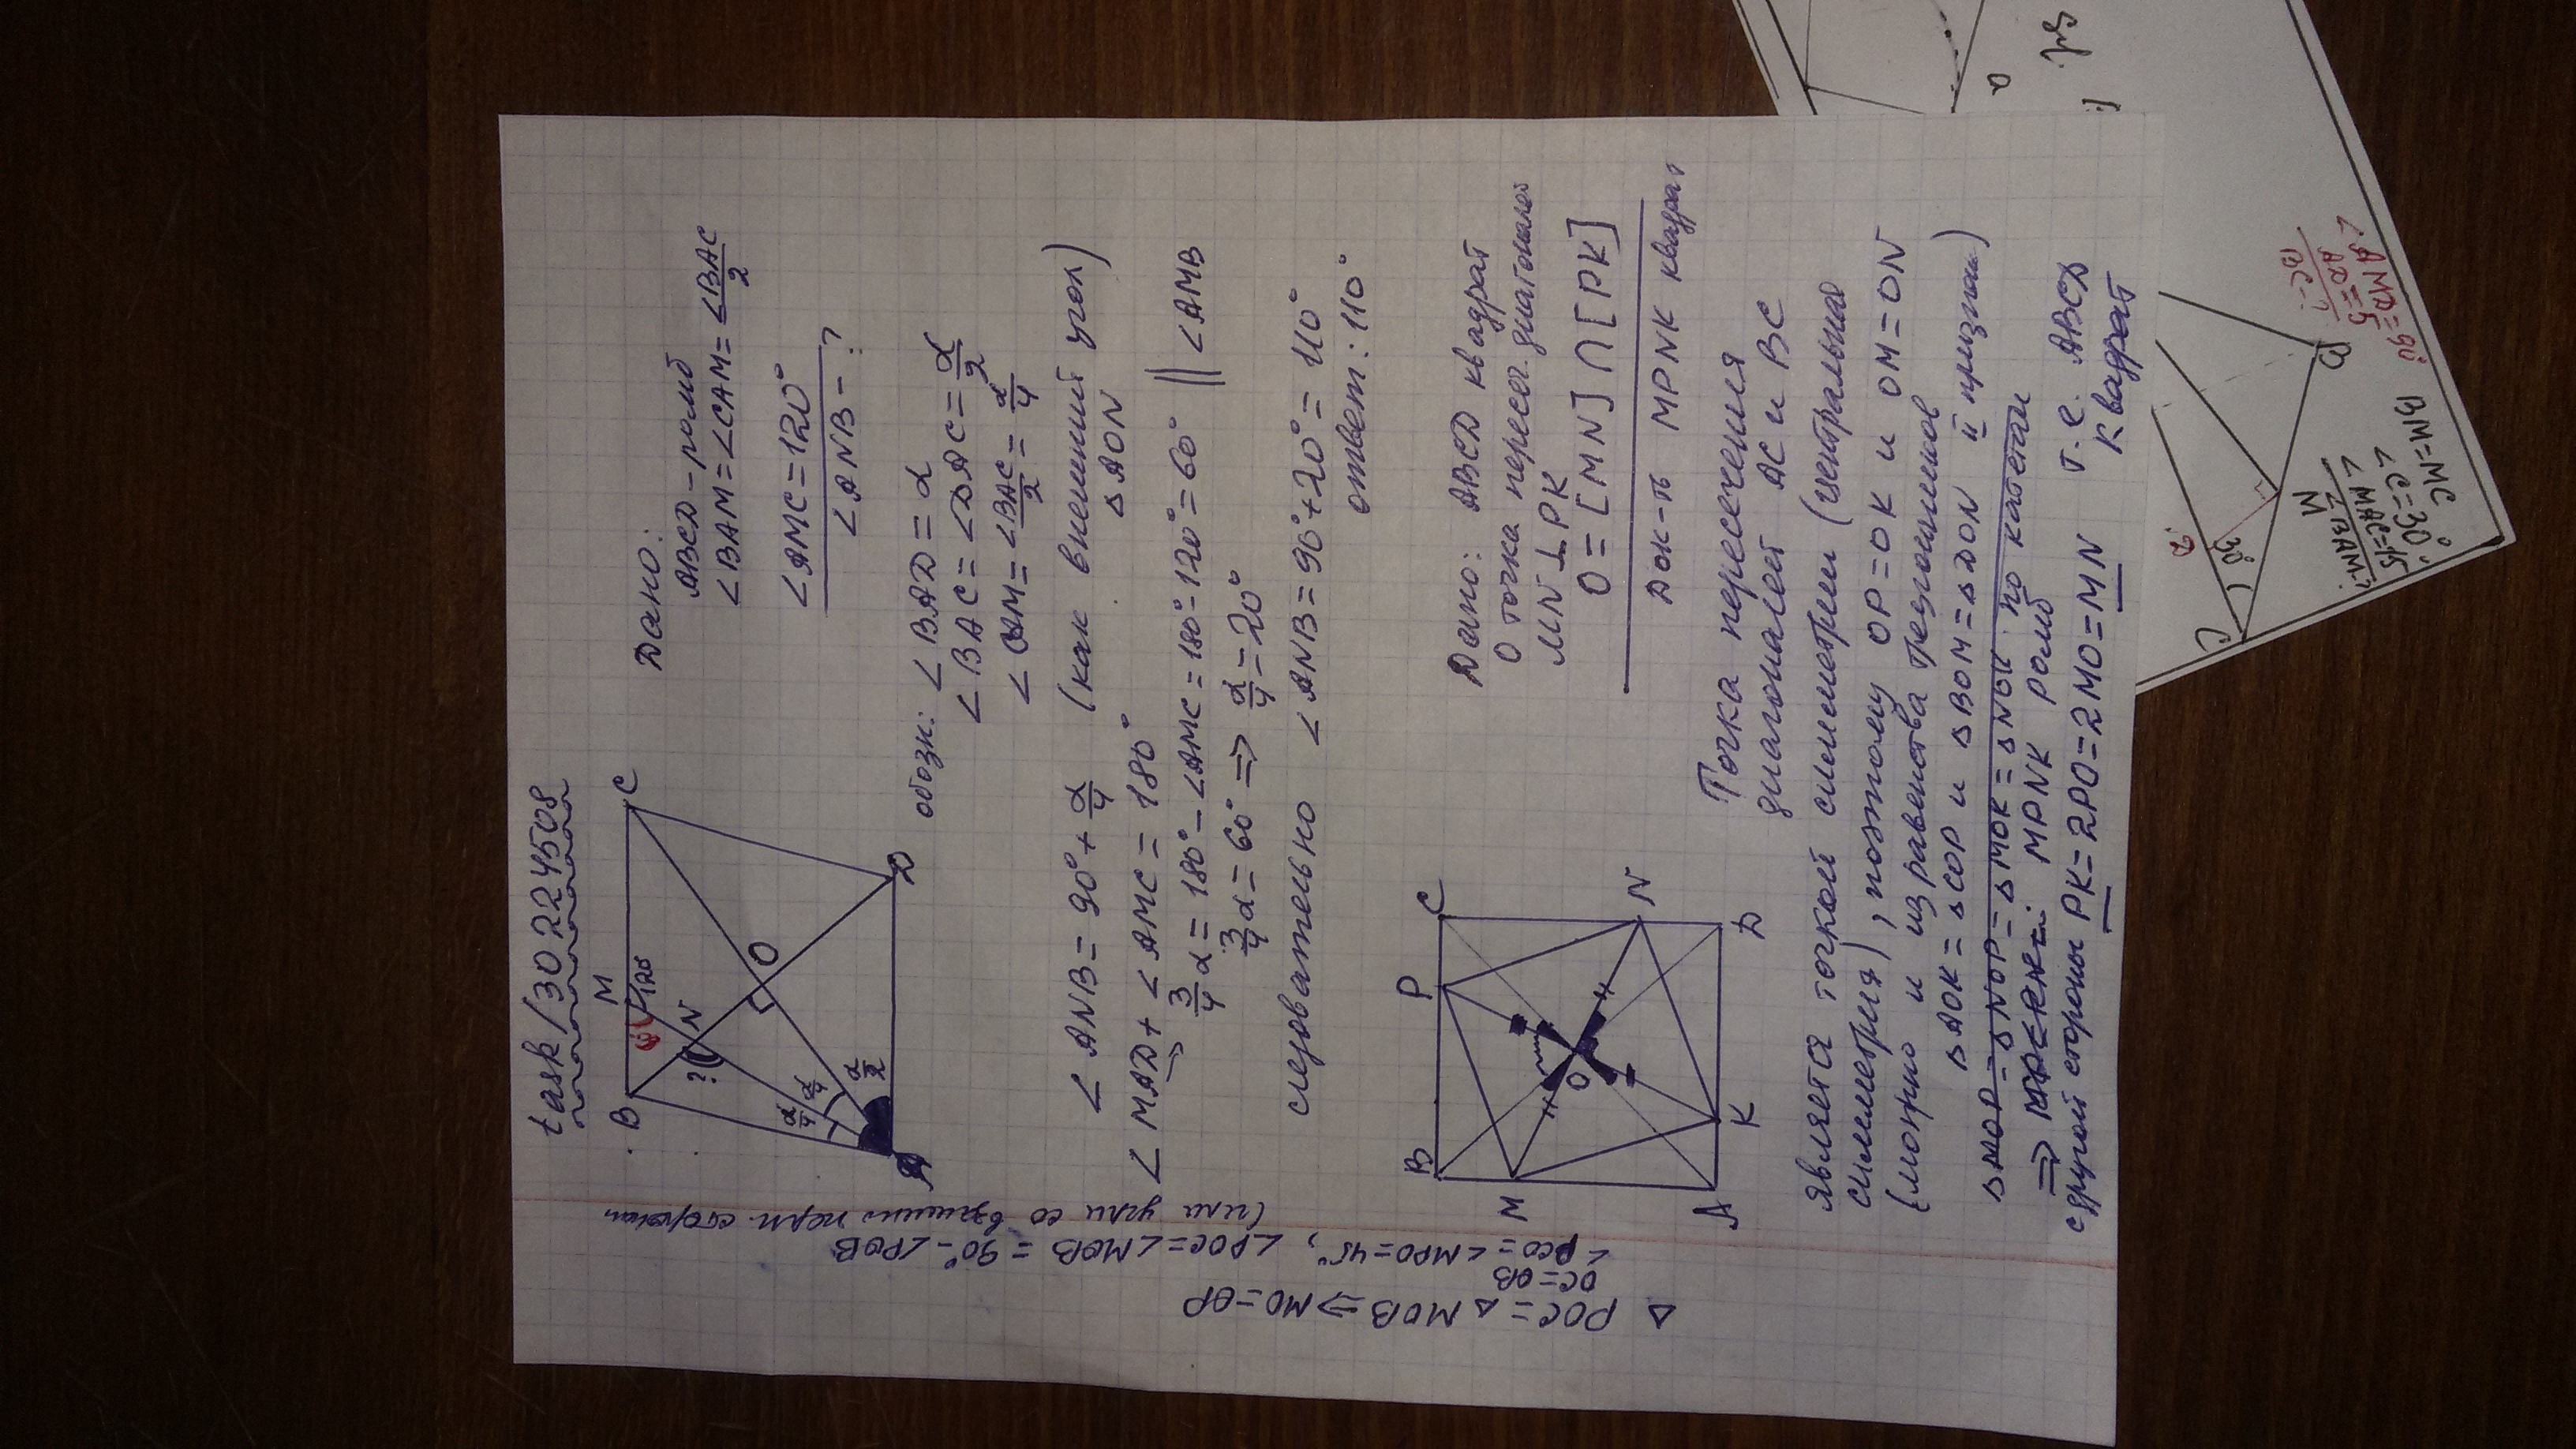 task/302224508
B
M
C
120
N
?
O
α/4
α/4
α/2
A
D
Дано:
ABCD - ромб
∠BAM = ∠CAM = ∠BAC/2
∠AMC = 120°
∠ANB - ?
обозн: ∠BAD = α
∠BAC = ∠DAC = α/2
∠CAM = ∠BAC/2 = α/4
∠ANB = 90° + α/4 (как внешний угол)
△AON
∠MAD + ∠AMC = 180°
⇒ 3/4 α = 180° - ∠AMC = 180° - 120° = 60° || ∠AMB
3/4 α = 60° ⇒ α/4 = 20°
следовательно ∠ANB = 90° + 20° = 110°
ответ: 110°
B
P
C
M
O
N
A
K
D
Дано: ABCD квадрат
O точка пересеч. диагоналей
MN ⊥ PK
O = [MN] ∩ [PK]
Док-ть MPNK квадрат
Точка пересечения
диагоналей AC и BC
является точкой симметрии (центральная
симметрия), поэтому OP = OK и OM = ON
(можно и из равенства треугольников
△AOK = △COP и △BOM = △DON II признак)
△MOP = △NOP = △MOK = △NOK по катетам
⇒ MPNK ромб
с другой стороны PK = 2PO = 2MO = MN т.е. ABCD
квадрат
△POC = △MOB ⇒ MO = OP
OC = OB
∠PCO = ∠MPO = 45°, ∠POC = ∠MOB = 90° - ∠POB
(или углы со взаимно перп. сторонам
C
30
D
M
∠MAB = ?
∠MAC = 15
∠C = 30°
BM = MC
BC - ?
AD = 5
∠AMD = 90